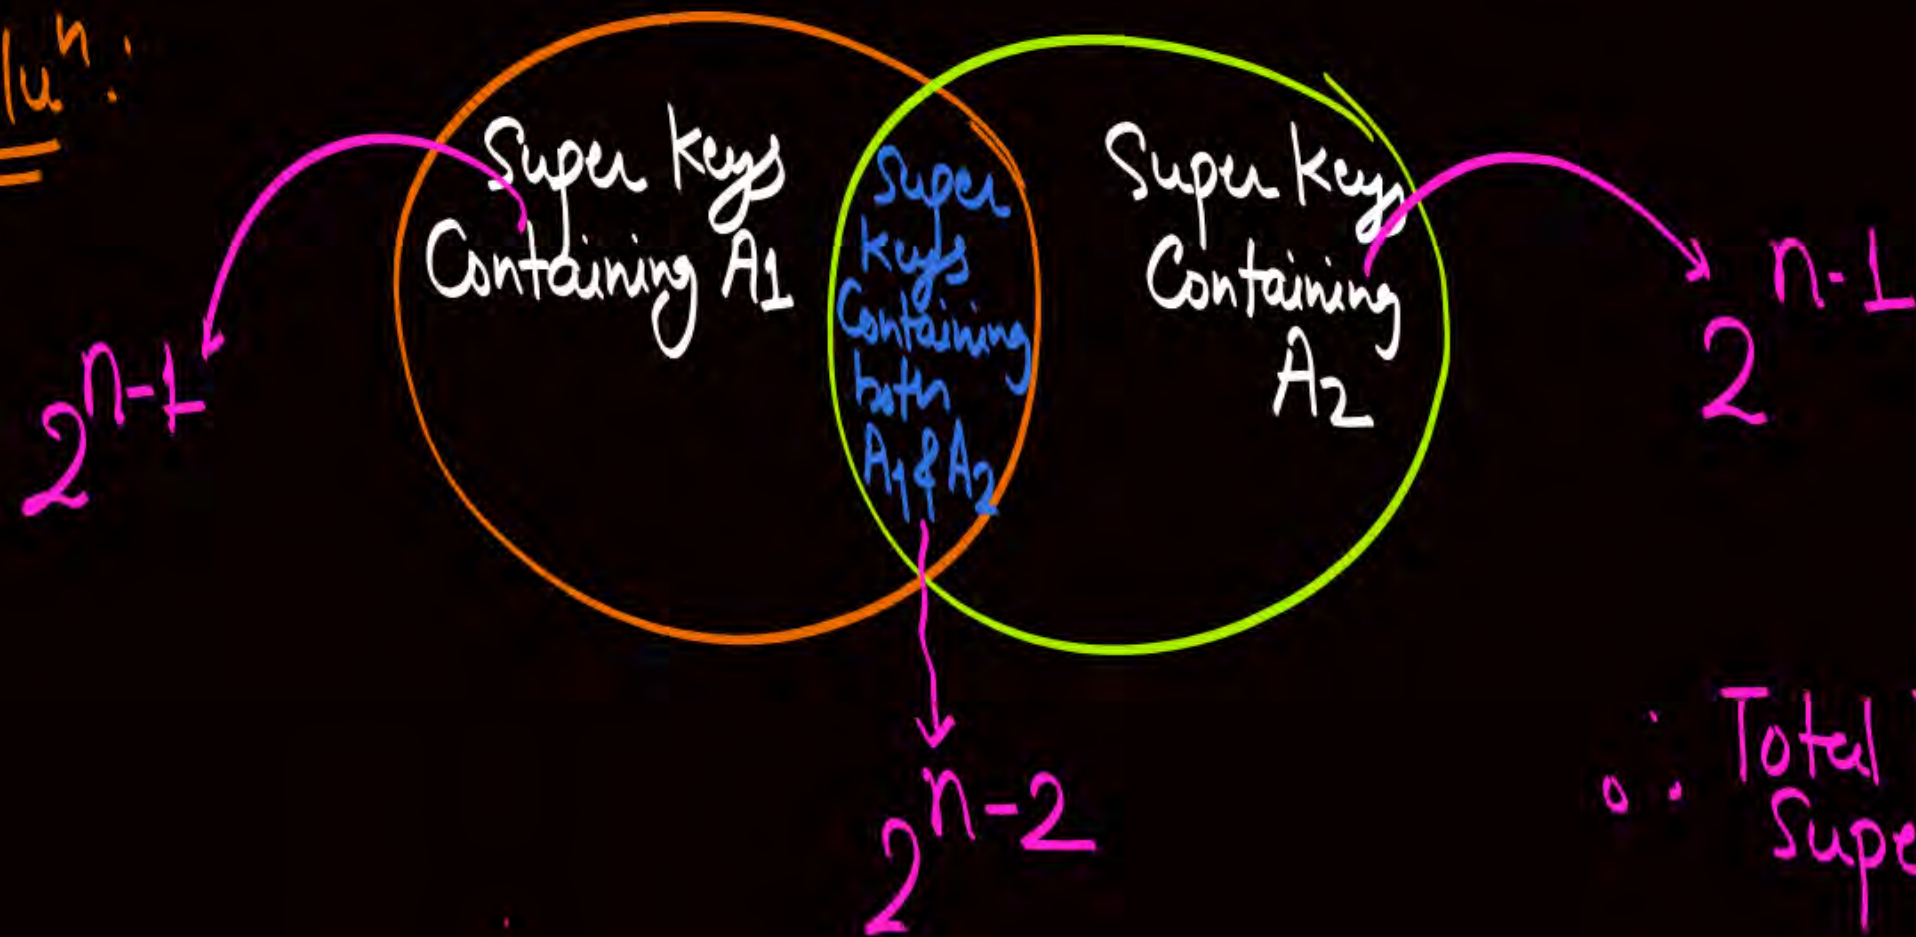 luⁿ:
Super Keys
Containing A1
2ⁿ⁻¹
Super
keys
Containing
both
A₁ & A₂
2ⁿ⁻²
Super Keys
Containing
A₂
2ⁿ⁻¹
∴ Total
Supe